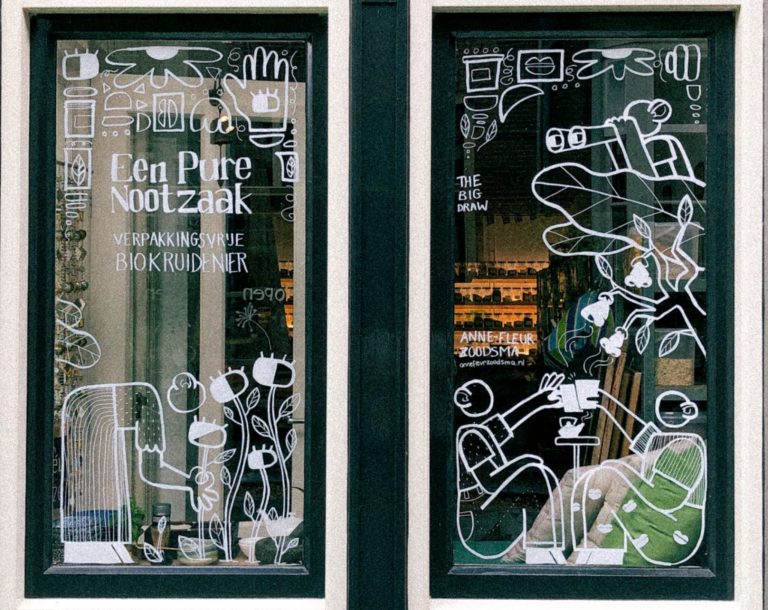 Een Pure
Nootzaak
VERPAKKINGSVRIJE
BIOKRUIDENIER
open
THE
BIG
DRAW
ANNE-FLEUR
ZOODSMA
annefleurzoodsma.nl